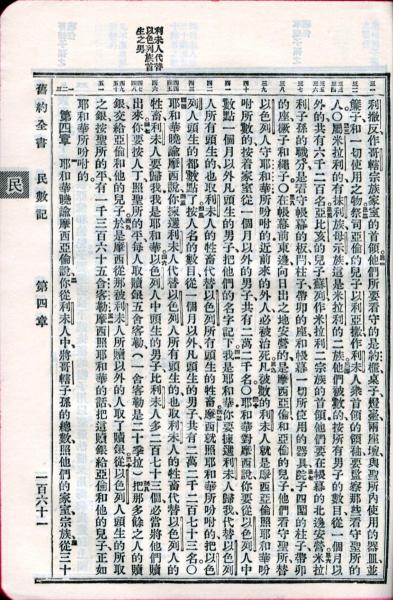 利未人代替
以色列族首
生之男
利撒反作哥轄宗族家室的首領他們所要看守的是約櫃桌子燈臺兩座壇與聖所內使用的器皿並
簾子和一切使用之物祭司亞倫的兒子以利亞撒作利未人衆首領的領袖要監察那些看守聖所的
人〇屬米拉利的有抹利族母示族這是米拉利的二族他們被數的按所有男子的數目從一個月以
外的共有六千二百名亞比亥的兒子蘇列作米拉利二宗族的首領他們要在帳幕的北邊安營米拉
利子孫的職分是看守帳幕的板閂柱子帶卯的座和帳幕一切所使用的器具院子四圍的柱子帶卯
的座橛子和繩子〇在帳幕前東邊向日出之地安營的是摩西亞倫和亞倫的兒子他們看守聖所替
以色列人守耶和華所吩咐的近前來的外人必被治死凡被數的利未人就是摩西亞倫照耶和華吩
咐所數的按着家室從一個月以外的男子共有二萬二千名〇耶和華對摩西說你要從以色列人中
數點一個月以外凡頭生的男子把他們的名字記下我是耶和華你要揀選利未人歸我代替以色列
人所有頭生的也取利未人的牲畜代替以色列所有頭生的牲畜摩西就照耶和華所吩咐的把以色
列人頭生的都數點了按人名的數目從一個月以外凡頭生的男子共有二萬二千二百七十三名〇
耶和華曉諭摩西說你揀選利未人代替以色列人所有頭生的也取利未人的牲畜代替以色列人的
牲畜利未人要歸我我是耶和華以色列人中頭生的男子比利未人多二百七十三個必當將他們贖
出來你要按人丁照聖所的平每人取贖銀五舍客勒(一舍客勒是二十季拉)把那多餘之人的贖
銀交給亞倫和他的兒子於是摩西從那被利未人所贖以外的人取了贖銀從以色列人頭生的所取
之銀按聖所的平有一千三百六十五舍客勒摩西照耶和華的話把這贖銀給亞倫和他的兒子正如
耶和華所吩咐的
第四章 耶和華曉諭摩西亞倫說你從利未人中將哥轄子孫的總數照他們的家室宗族從三十
舊約全書 民數記 第四章 一百六十一
民